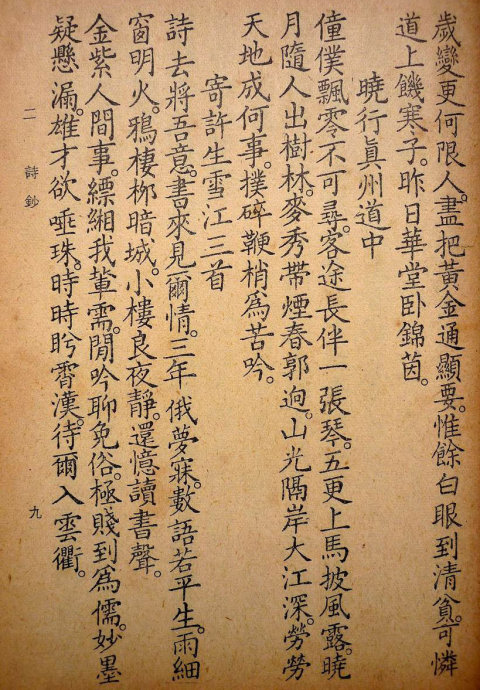 歲變更何限人。盡把黃金通顯要。惟餘白眼到清貧。可憐
道上饑寒子。昨日華堂臥錦茵。
曉行眞州道中
僮僕飄零不可尋。客途長伴一張琴。五更上馬披風露。曉
月隨人出樹林。麥秀帶煙春郭迥。山光隔岸大江深。勞勞
天地成何事。撲碎鞭梢爲苦吟。
寄許生雪江三首
詩去將吾意。書來見爾情。三年俄夢寐。數語若平生。雨細
窗明火。鴉棲栁暗城。小樓良夜靜。還憶讀書聲。
金紫人間事。縹緗我輩需。閒吟聊免俗。極賤到爲儒。妙墨
疑懸漏。雄才欲唾珠。時時盻霄漢。待爾入雲衢。
二 詩鈔 九